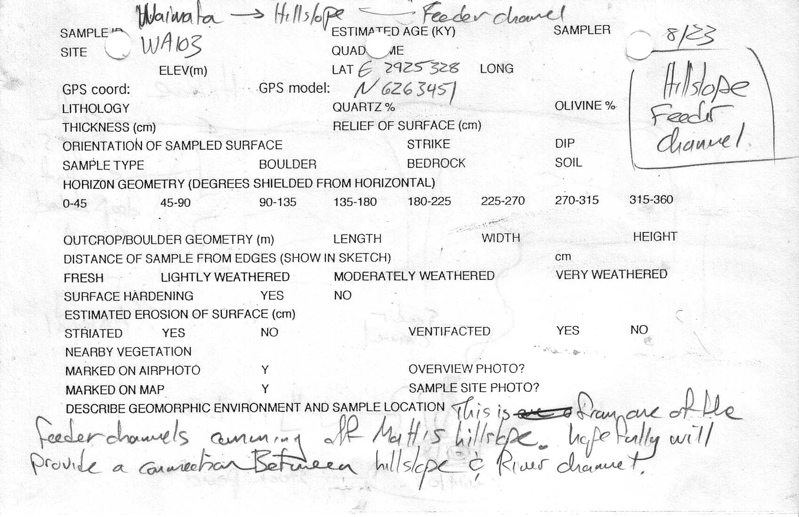 Waiwata → Hillslope — Feeder channel
SAMPLE ID ESTIMATED AGE (KY) SAMPLER 8/23
SITE WA103 QUAD ME
ELEV(m) LAT E 2925328 LONG
GPS coord: GPS model: N 6263451
Hillslope
Feeder
channel.
LITHOLOGY QUARTZ % OLIVINE %
THICKNESS (cm) RELIEF OF SURFACE (cm)
ORIENTATION OF SAMPLED SURFACE STRIKE DIP
SAMPLE TYPE BOULDER BEDROCK SOIL
HORIZON GEOMETRY (DEGREES SHIELDED FROM HORIZONTAL)
0-45 45-90 90-135 135-180 180-225 225-270 270-315 315-360
OUTCROP/BOULDER GEOMETRY (m) LENGTH WIDTH HEIGHT
DISTANCE OF SAMPLE FROM EDGES (SHOW IN SKETCH) cm
FRESH LIGHTLY WEATHERED MODERATELY WEATHERED VERY WEATHERED
SURFACE HARDENING YES NO
ESTIMATED EROSION OF SURFACE (cm)
STRIATED YES NO VENTIFACTED YES NO
NEARBY VEGETATION
MARKED ON AIRPHOTO Y OVERVIEW PHOTO?
MARKED ON MAP Y SAMPLE SITE PHOTO?
DESCRIBE GEOMORPHIC ENVIRONMENT AND SAMPLE LOCATION This is from one of the
feeder channels comming off Mattis hillslope. hopefully will
provide a connection Between hillslope & River channel.